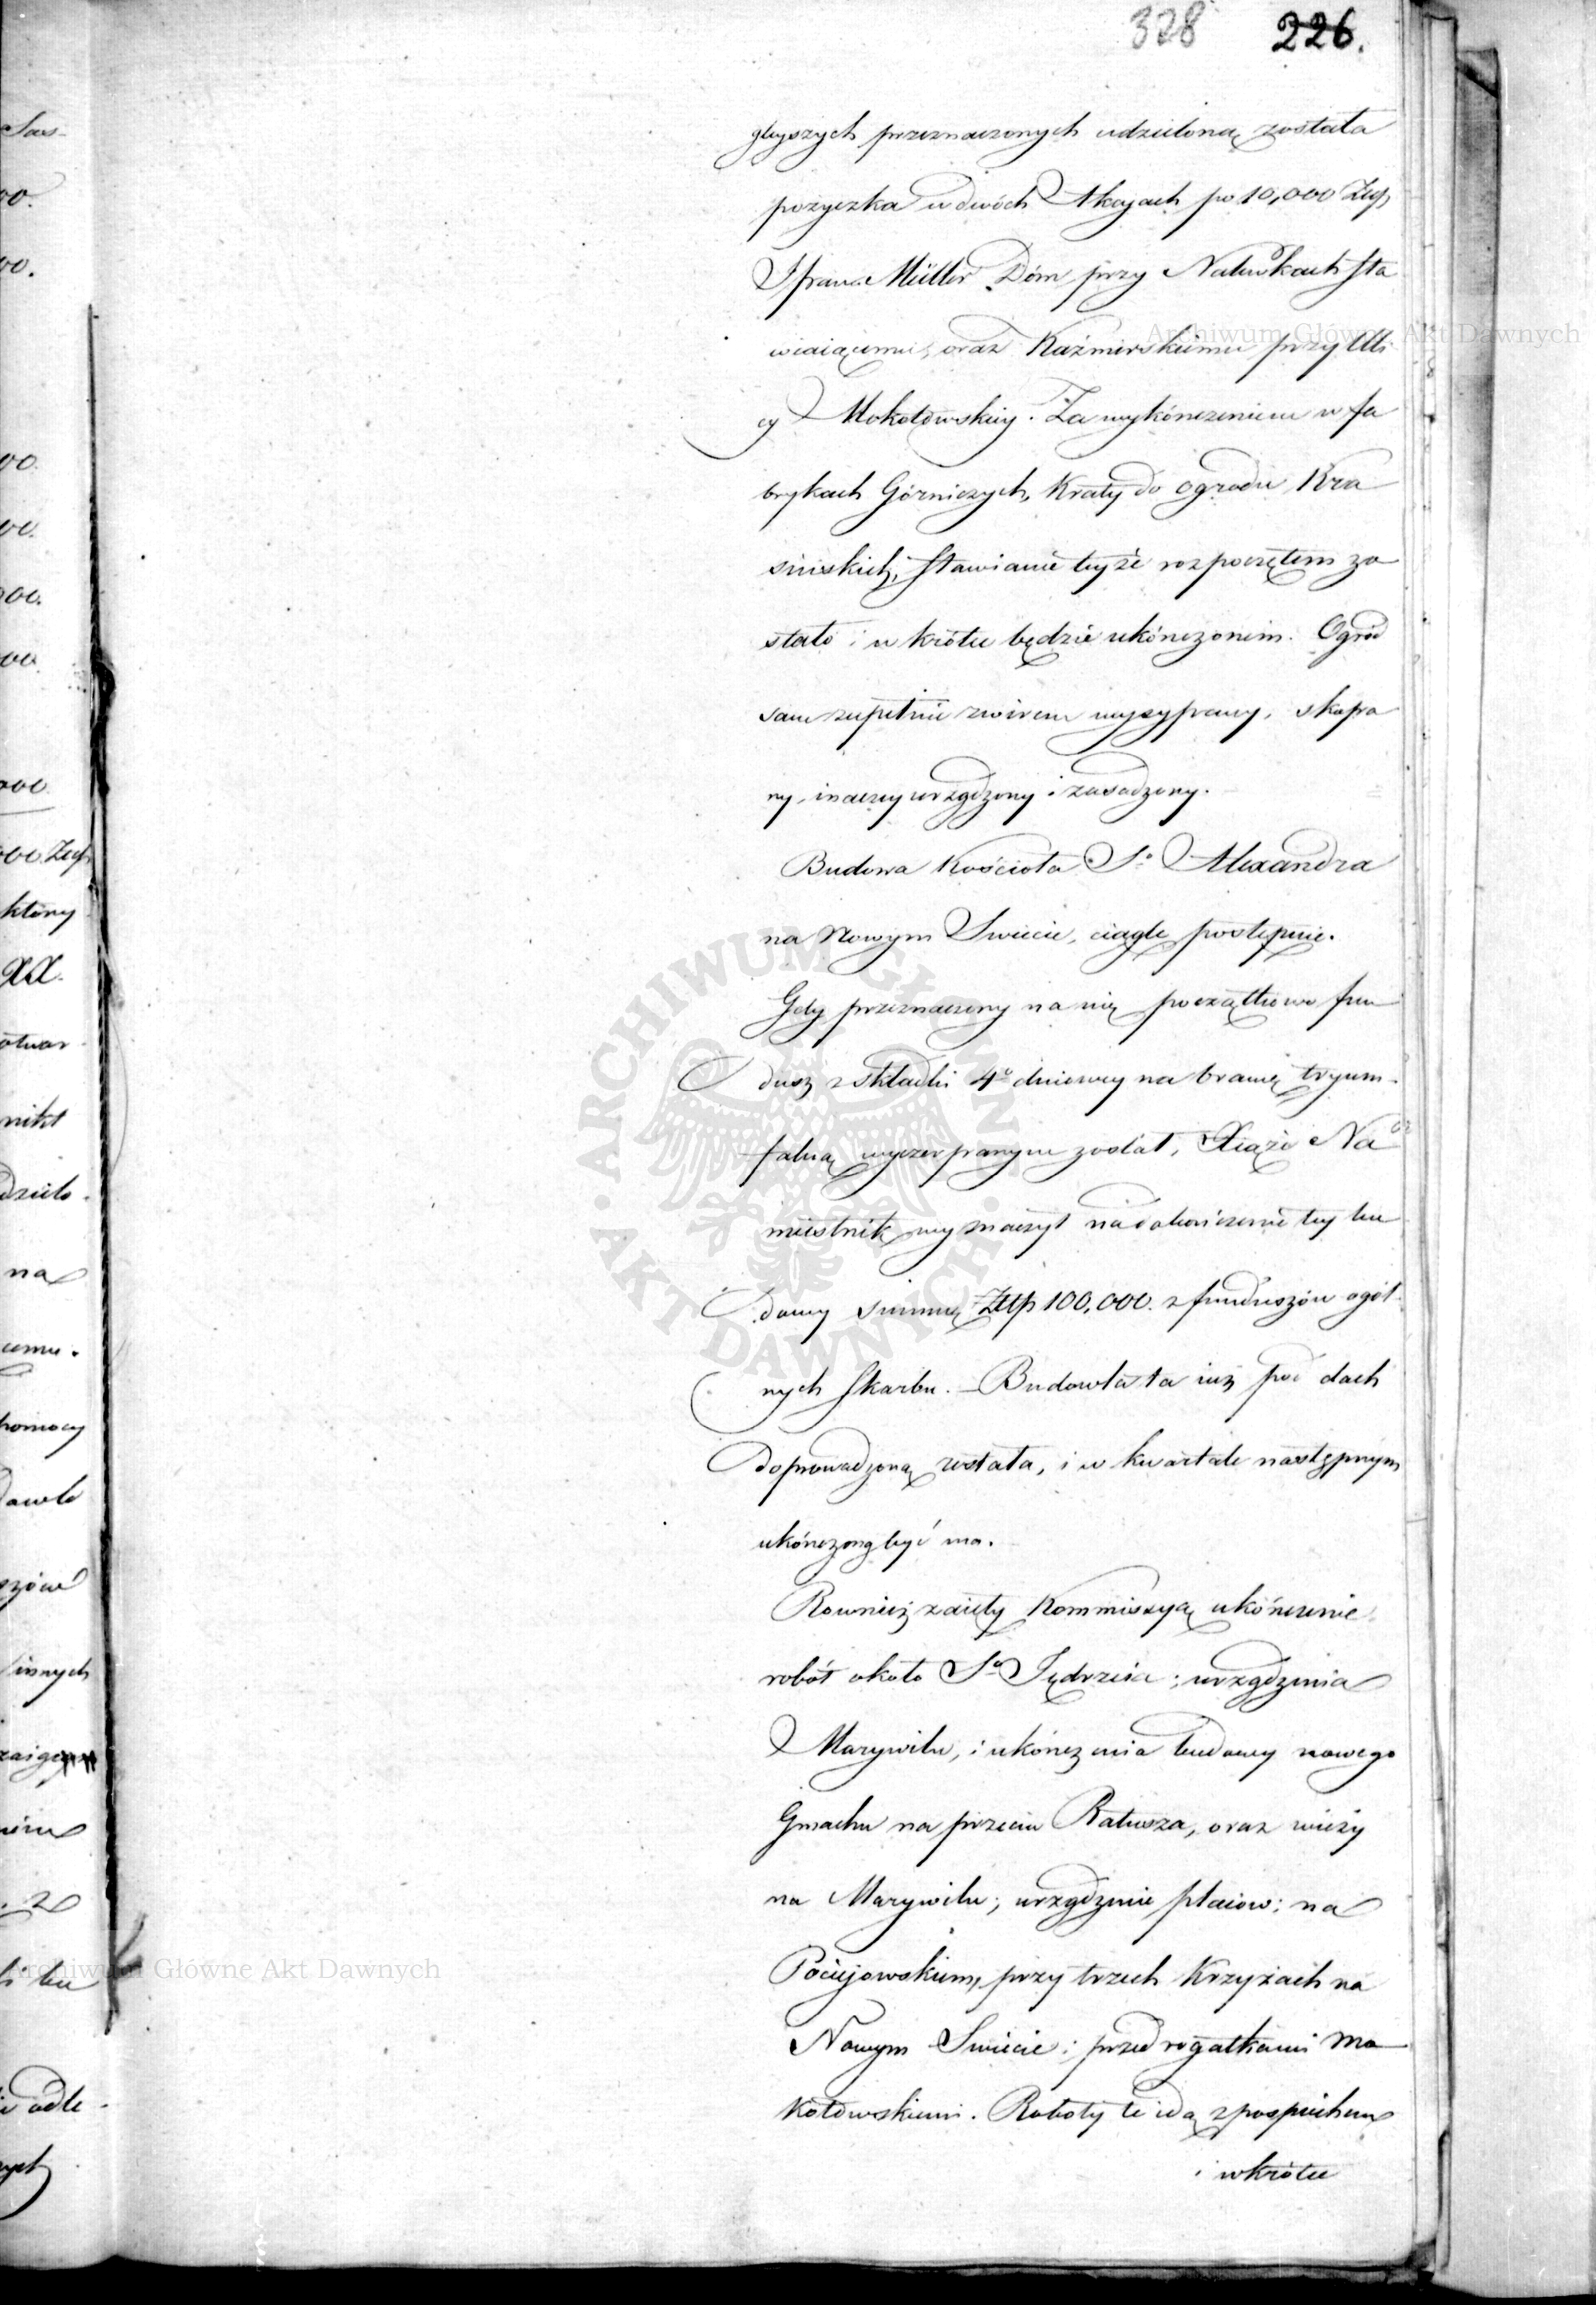 328 226.
głeyszych przeznaczonych udzieloną została
pożyczka w dwóch Akcjach po 10,000 Złp
Müller Dóm przy Nalewkach sta
wiaiącemu, oraz Kaźmirskiemu przy Uli
cy Mokotowskiey. Za wykónczeniem w fa
brykach Górniczych, Kraty do ogrodu Kra
sińskich, stawianie teyże rozpoczętem zo
stało i w krótce będzie ukónczonem. Ogród
sam zupełnie zwirem wysypany, skopa
ny, inaczey urządzony i zasadzony.
Budowa Kościoła S° Alexandra
na Nowym Swiecie, ciągle postępuie.
Gdy przeznaczony na nię początkowo fun
dusz z składki 4° dniowey na bramę tryum-
falną wyczerpanym został, Xiąże Na
miestnik wyznaczył na dokończenie tey bu
dowy summę Złłp 100,000. z funduszów ogól
nych skarbu. – Budowla ta iuż pod dach
doprowadzoną została, i w kwartale następnym
ukónczoną być ma.
Rownież zaięły Kommissyą ukónczenie
robót około S° Jędrzeia; urządzenia
Marywilu, i ukónczenia budowy nowego
Gmachu na przeciw Ratusza, oraz wieży
na Marywilu; urządzenie placow: na
Pociejowskiem, przy trzech Krzyżach na
Nowym Swiecie; przed rogatkami Mo
kotowskiemi. Roboty te idą z pospiechem
i wkrótce
Sas-
00.
00.
00.
00.
000.
00
000.
000 Złp
który
XX.
otwar
nikt
dzielo.
na
cemu.
pomocy
dawle
szów
innych
li bu
i odle-
nych
Archiwum Główne Akt Dawnych
ARCHIWUM GŁÓWNE AKT DAWNYCH
Archiwum Główne Akt Dawnych